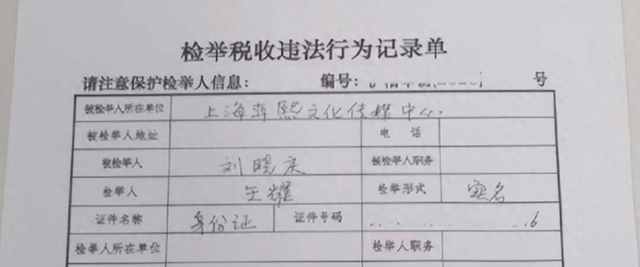 检举税收违法行为记录单
请注意保护检举人信息： 编号： 号
被检举人所在单位 上海 熙文化传媒中心
被检举人地址 电话
被检举人 刘晓庆 被检举人职务
检举人 王耀 检举形式 实名
证件名称 身份证 证件号码 6
检举人所在单位 检举人职务